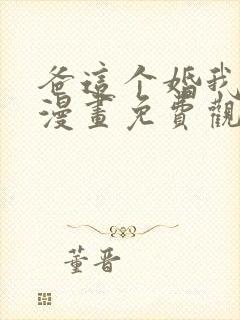 爸這个婚我
漫畫免費觀
董晋